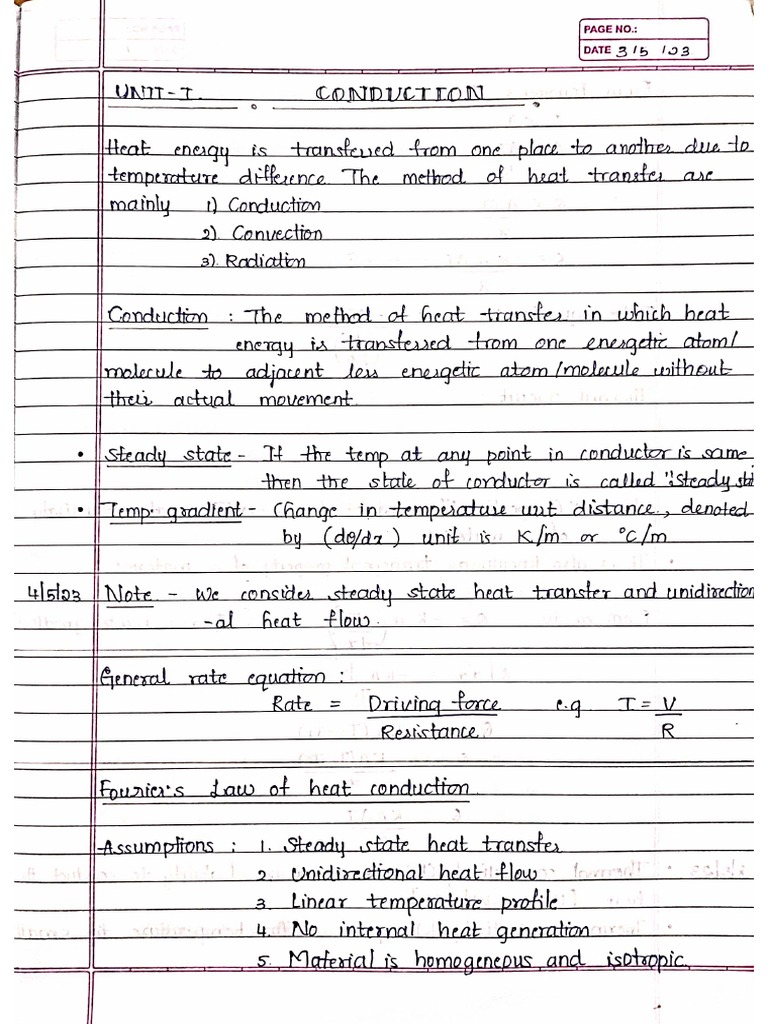 PAGE NO.:
DATE 3/5/23
UNIT-I. CONDUCTION
Heat energy is transferred from one place to another due to
temperature difference. The method of heat transfer are
mainly 1) Conduction
2). Convection
3). Radiation
Conduction : The method of heat transfer in which heat
energy is transferred from one energetic atom/
molecule to adjacent less energetic atom/molecule without
their actual movement.
• Steady state - If the temp at any point in conductor is same
then the state of conductor is called "Steady sta
• Temp. gradient - Change in temperature unit distance, denoted
by (dθ/dx) unit is K/m or °C/m
4/5/23 Note - We consider steady state heat transfer and unidirection
-al heat flow.
General rate equation :
Rate = Driving force e.g I = V
Resistance R
Fourier's Law of heat conduction.
Assumptions : 1. Steady state heat transfer
2. Unidirectional heat flow
3. Linear temperature profile
4. No internal heat generation
5. Material is homogeneous and isotropic.